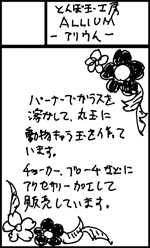 とんぼ玉工房
ALLIUM
-アリウム-
バーナーでガラスを
溶かして、丸玉に
動物キャラ玉を作って
います。
チョーカー、ブローチなどに
アクセサリー加工して
販売しています。